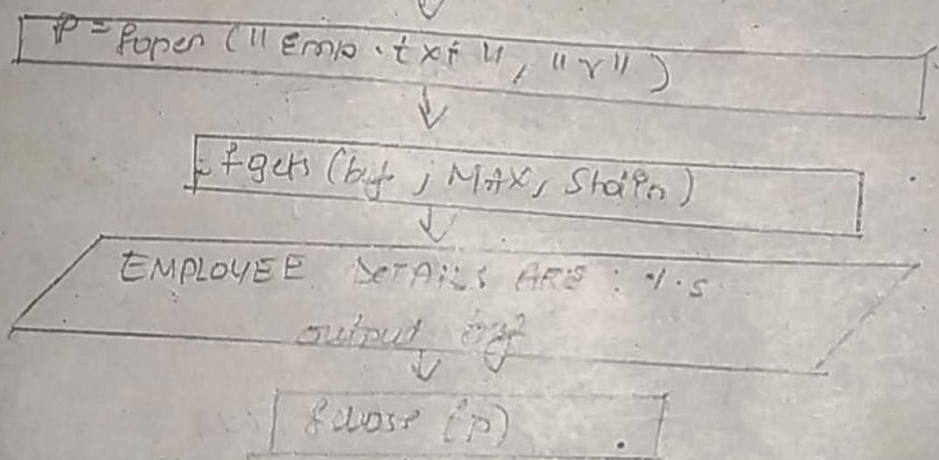 P = fopen ("Emp.txt", "r")
fgets (buf ; MAX, Stdin)
EMPLOYEE DETAILS ARE : %.s
output buf
fclose (p)